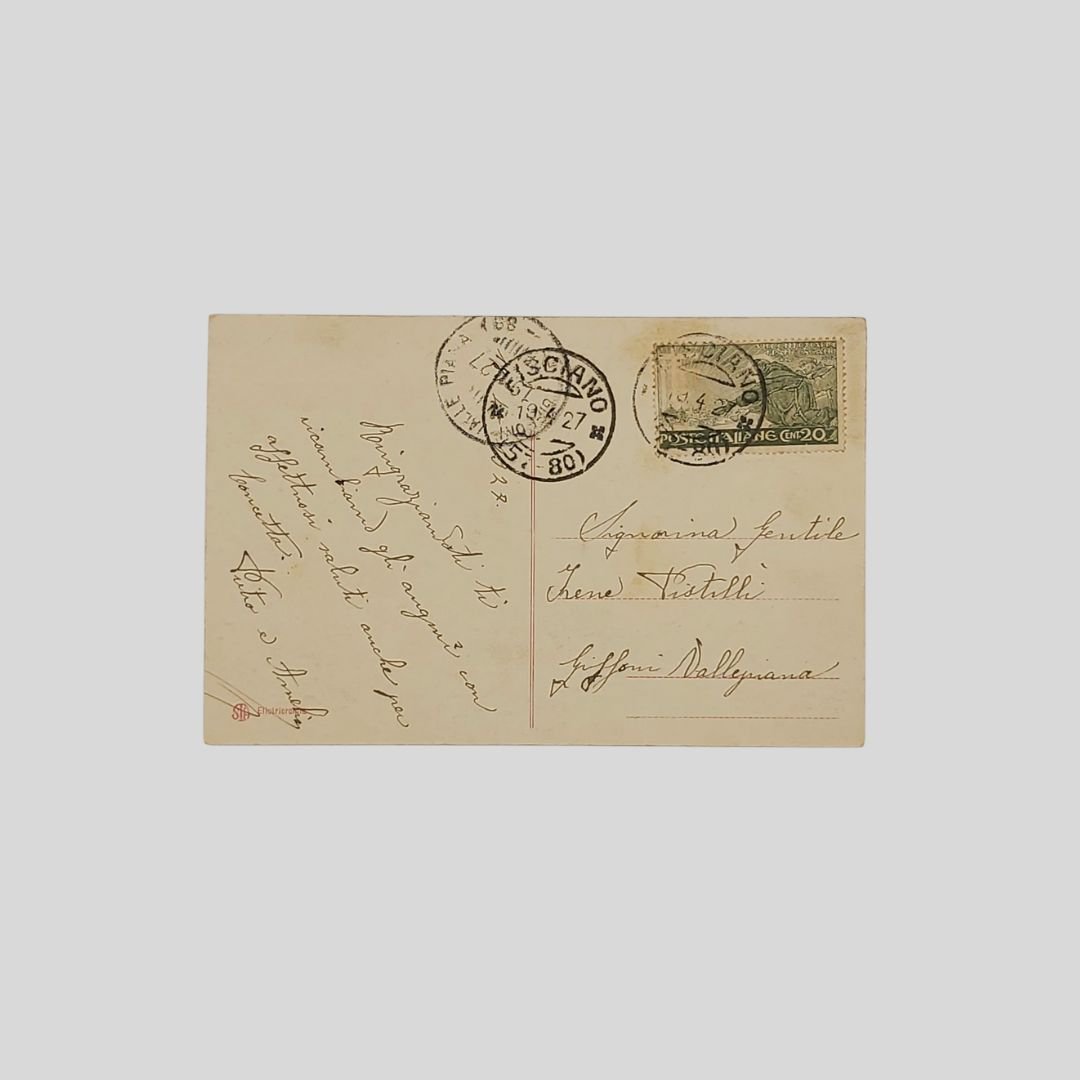 VALLE PIANA (88)
27
FISCIANO
19.4.27
(80)
FISCIANO
19.4
(80)
POSTE ITALIANE CENT. 20
27.
Ringraziandoti ti
ricambiamo gli auguri con
affettuosi saluti anche per
Concetta.
Vito e Amelia
Signorina Gentile
Irene Pistilli
Giffoni Vallepiana